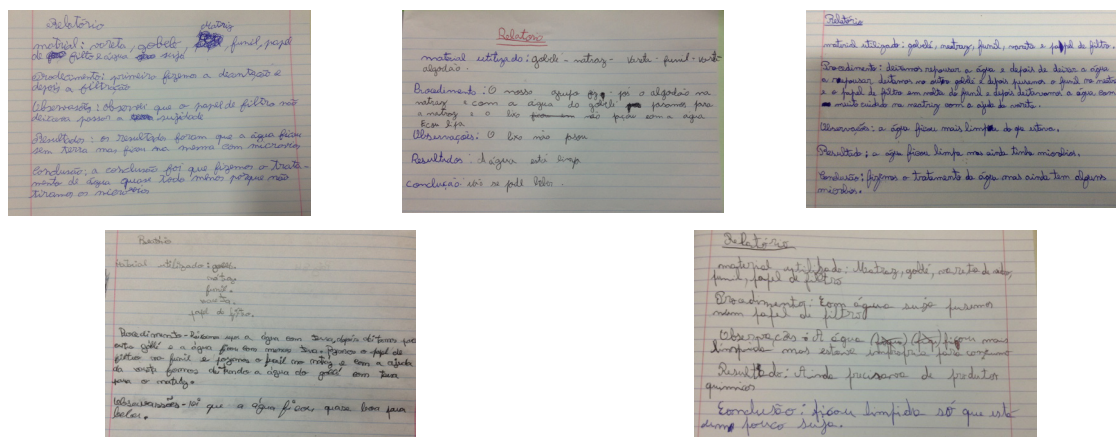 Relatório
Matriz
matrial: vareta, gobelé, funil, papel
de filtro e água suja
Prodecimento: primeiro fizemos a decantação e
depois a filtração
Observação: observei que o papel de filtro não
deixava passar a sujidade
Resultados: os resultado foram que a água ficou
sem terra mas ficou na mesma com micróvios
Conclusão: a conclusão foi que fizemos o trata-
mento de água quase todo menos porque não
tiramos os micróbios
Relatorio
material utilizado: gobelé - matraz - vareta - funil -
algodão.
Procedimento: O nosso grupo pôs o algodão na
matraz e com a água do gobelé pasamos para
a matraz e o lixo não a água
ficou lipa
Observações: O lixo não pasou
Resultados: A água está limpa
conclução: não se pode beber.
Relatório
material utilizado: gobelé, matraz, funil, vareta e papel de filtro.
Procedimento: deixamos repousar a água e depois de deixar a água
a repousar deitamos no outro gobelé e depois pusemos o funil no matraz
e o papel de filtro em volta do funil e depois deitavamos a água com
muito cuidado na matraz com a ajuda da vareta.
Observações: a água ficou mais limpa do que estava.
Resultado: a água ficou limpa mas ainda tinha micróbios.
Conclusão: fizemos o tratamento da água mas ainda tem alguns
micróbios.
Relatório
Material utilizado: gobelé.
matraz.
funil.
vareta.
papel de filtro.
Procedimento - a água com terra, depois deitamos para
outro gobélé e a água ficou com menos terra. Fizemos o papel de
filtro no funil e pozemos o funil no matraz e com a ajuda
da vareta fomos deitando a água do gobelé com terra
para o matraz.
Observações - Foi que a água ficou quase boa para
beber.
Relatório
material utilizado: Matraz, godé, vareta de vidro,
funil, papel de filtro
Procedimento: Com água suja pusemos
num papel de filtro
Observações: A água ficou mais
límpida mas estava imprópria para consumo
Resultado: Ainda precisava de produtos
químicos
Conclusão: ficou limpida só que está
um pouco suja.